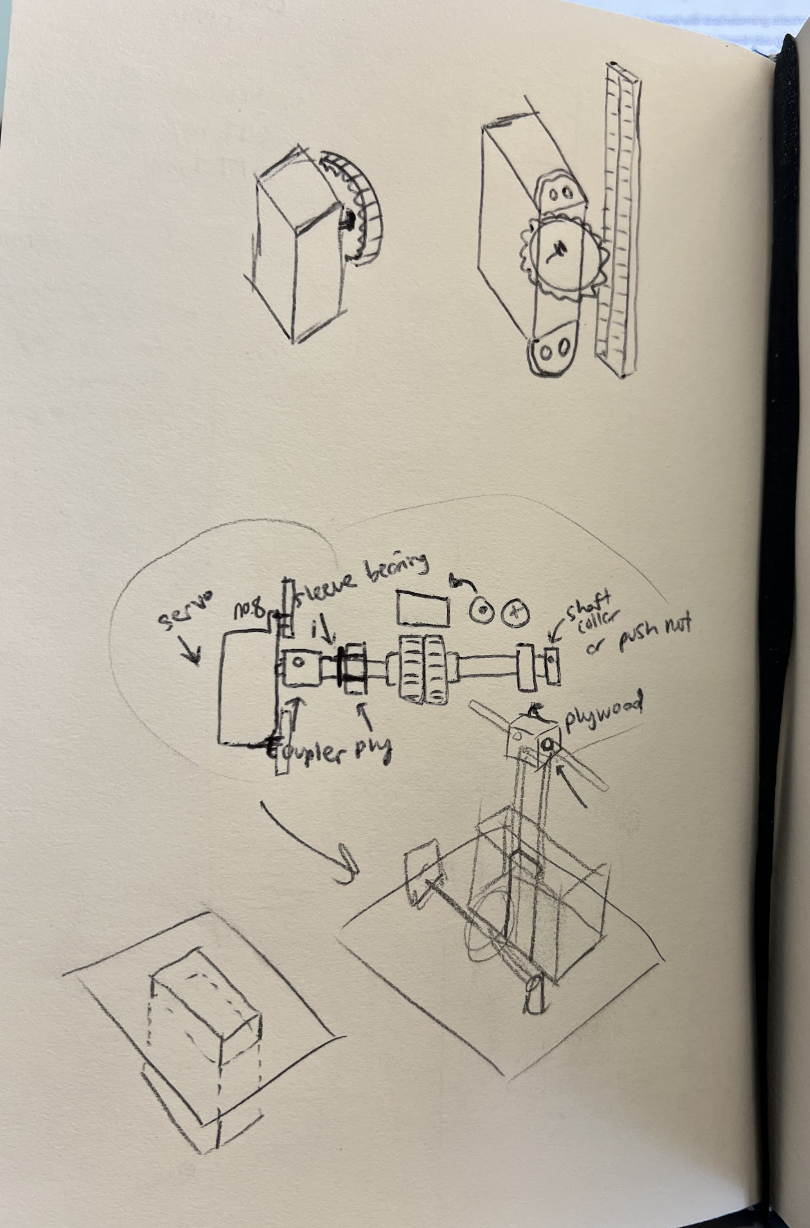 servo
sleeve bearing
shaft
collar
or push nut
coupler
ply
plywood